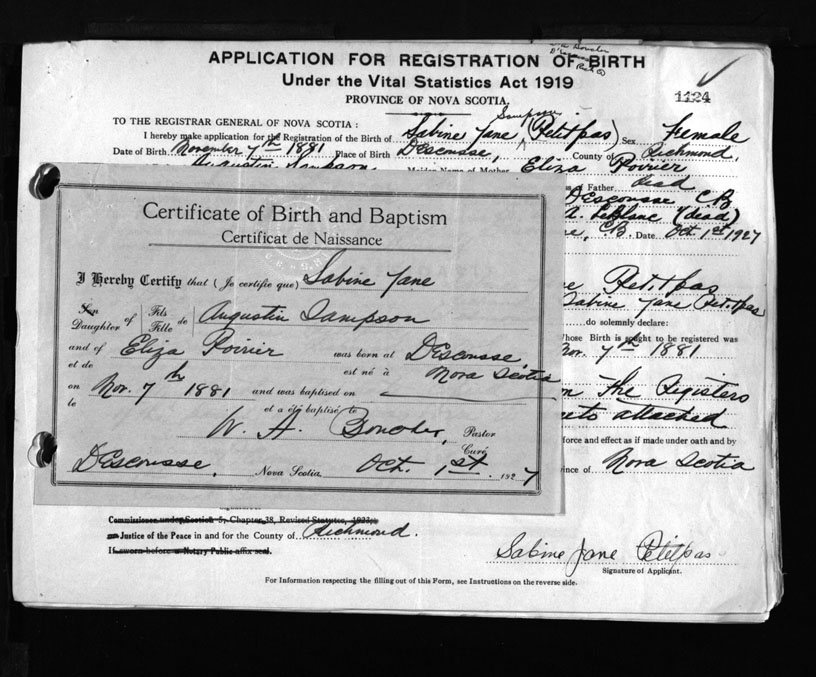 APPLICATION FOR REGISTRATION OF BIRTH
Under the Vital Statistics Act 1919
PROVINCE OF NOVA SCOTIA.
1124
Sampson
TO THE REGISTRAR GENERAL OF NOVA SCOTIA :
I hereby make application for the Registration of the Birth of Sabine Jane (Petitpas) Sex Female
Date of Birth November 7th 1881 Place of Birth Descousse, County of Richmond.
Augustin Sampson Maiden Name of Mother Eliza Poirier
of Father dead
Descousse C.B
A. LeBlanc (dead)
C.B. Date Oct. 1st 1927
Certificate of Birth and Baptism
Certificat de Naissance
I Hereby Certify that (Je certifie que) Sabine Jane
Son Daughter of Fils Fille de Augustin Sampson
and of et de Eliza Poirier was born at est né à D'Escousse Nova Scotia
on le Nov. 7th 1881 and was baptised on et a été baptisé le
W. A. Pastor Curé
D'Escousse, Nova Scotia Oct. 1st 1927
Petitpas
Sabine Jane Petitpas
do solemnly declare:
whose Birth is sought to be registered was
Nov. 7th 1881
on the Registers
attached
force and effect as if made under oath and by
Province of Nova Scotia
Commissioner under Section 5, Chapter 38, Revised Statutes, 1923;
or Justice of the Peace in and for the County of Richmond.
If sworn before a Notary Public affix seal.
Sabine Jane Petitpas
Signature of Applicant.
For Information respecting the filling out of this Form, see Instructions on the reverse side.